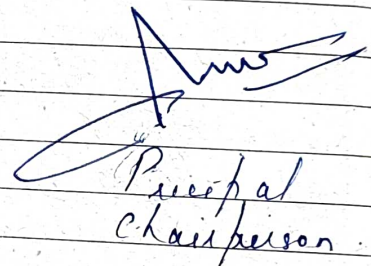 Principal
Chairperson